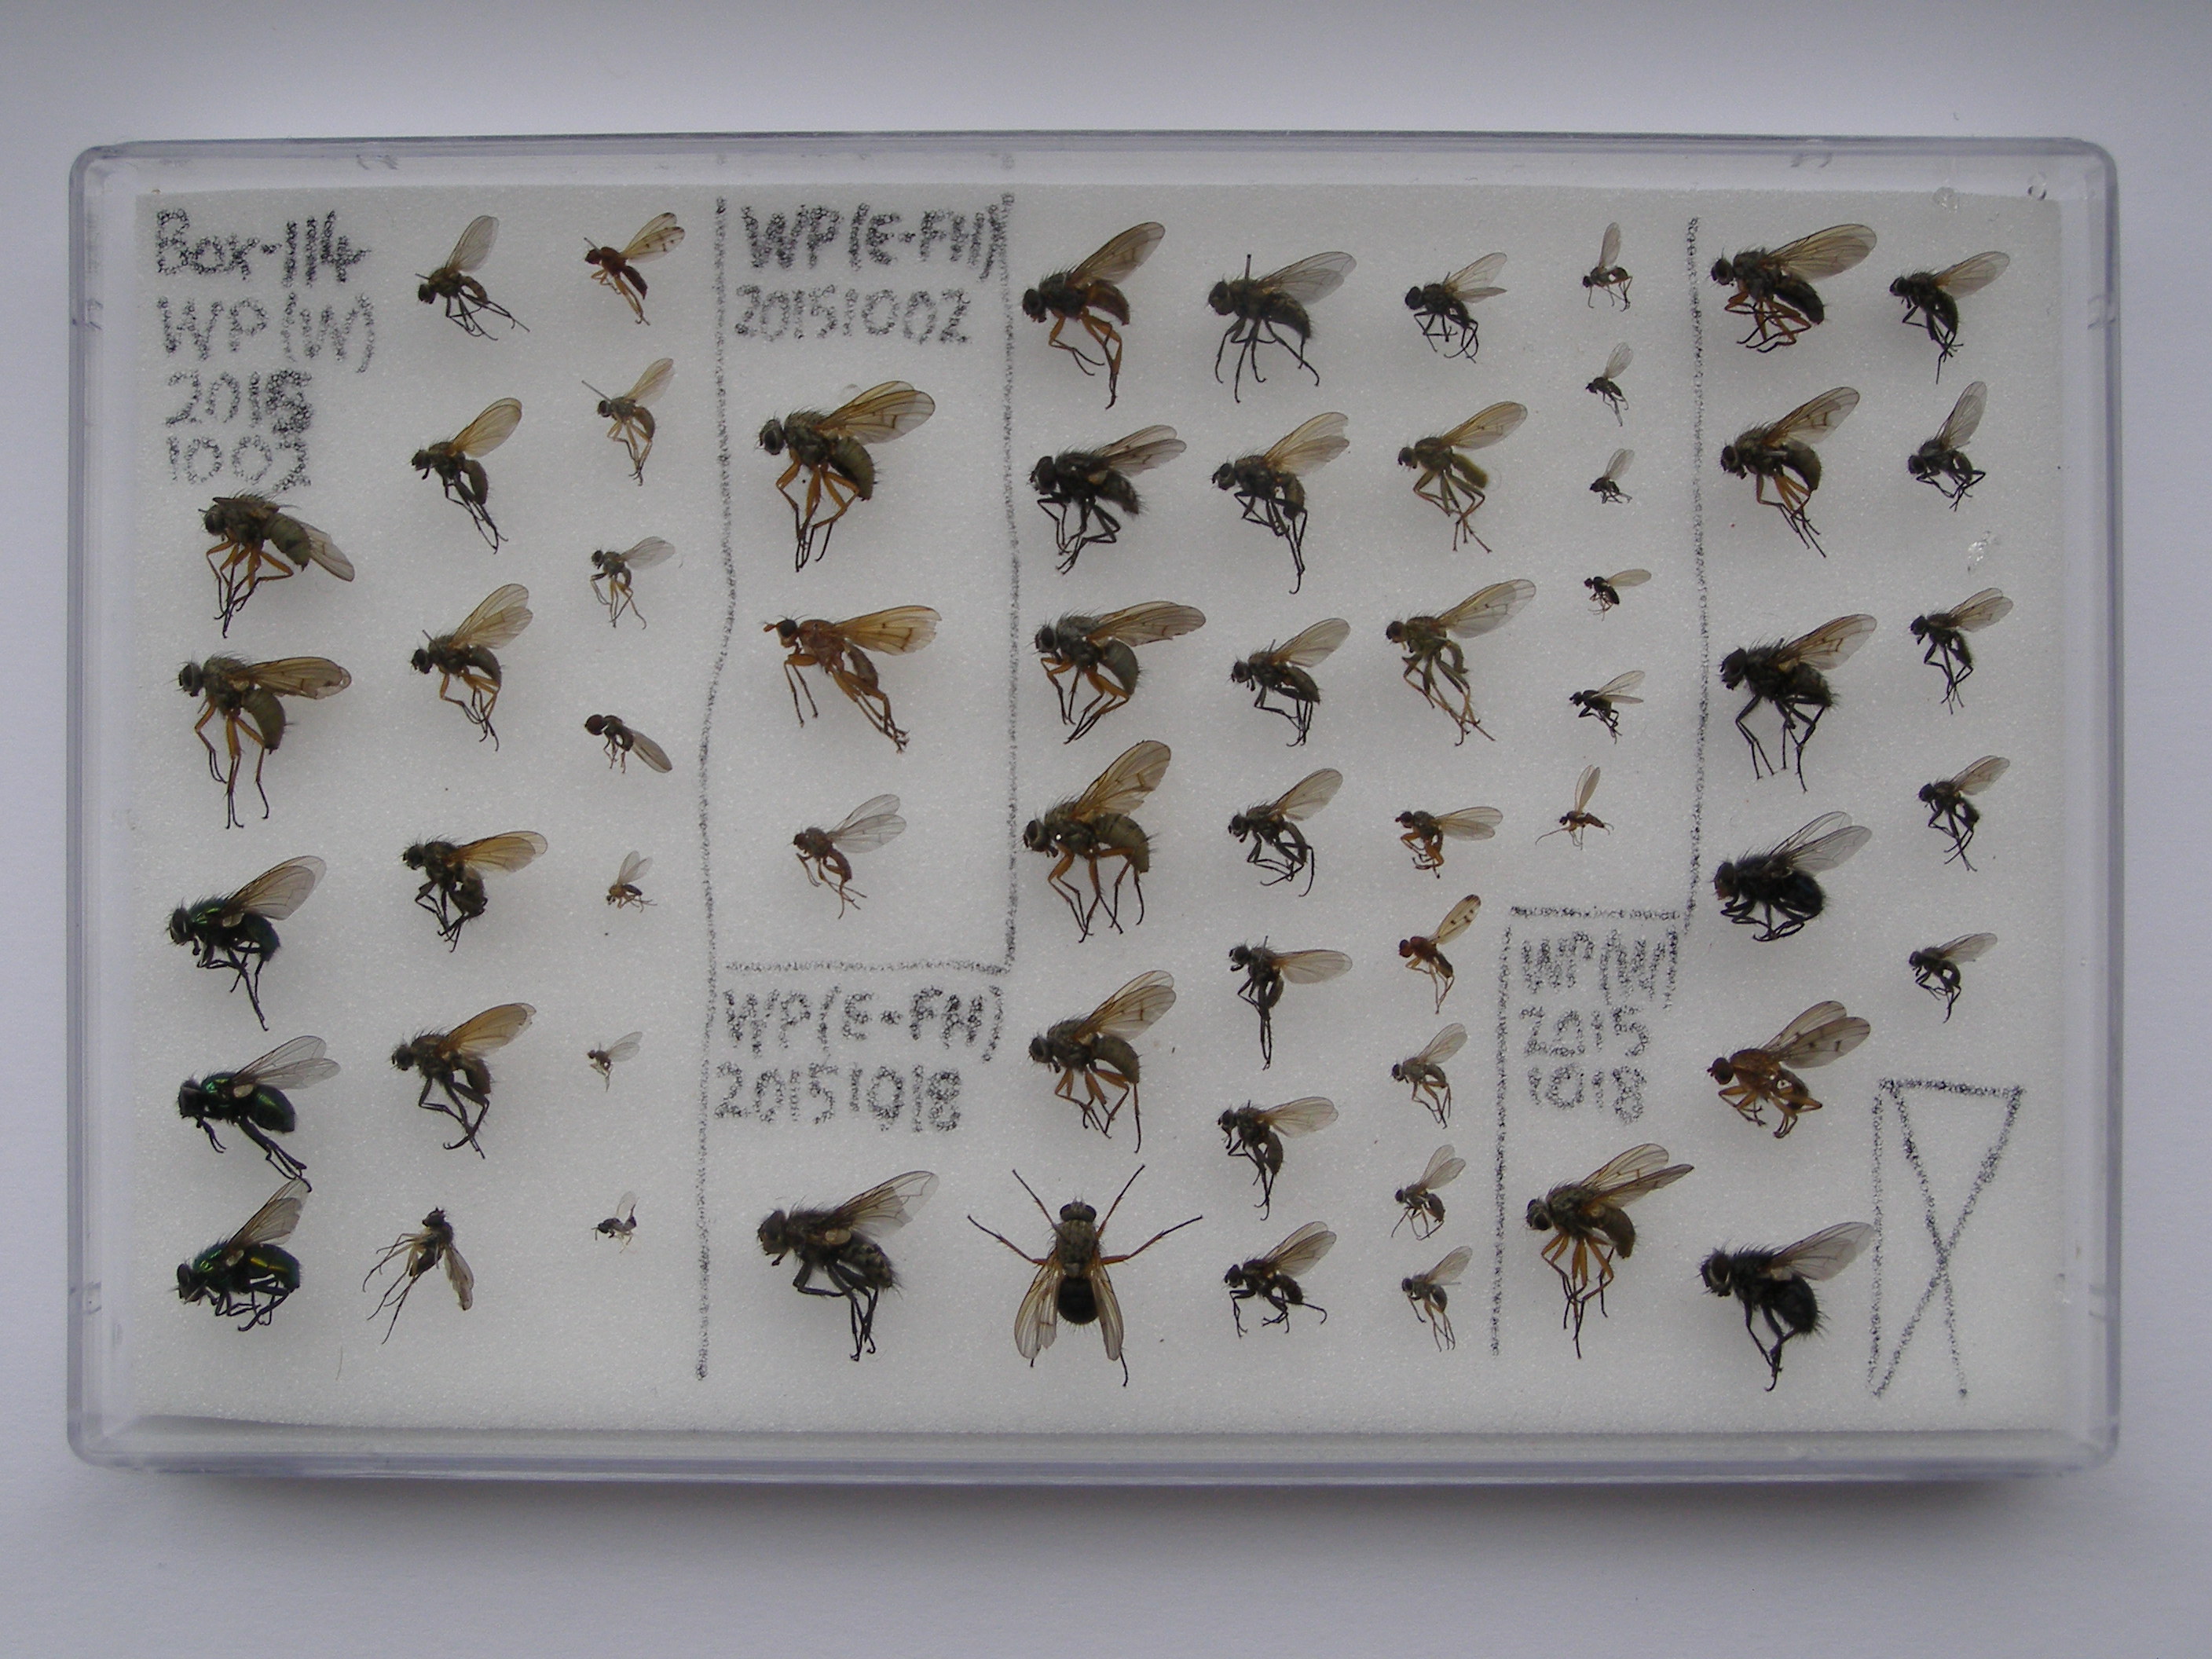 Box-114
WP(IM)
2015
1003
WP(E-FH)
20151002
WP(E-FH)
20151018
WP(W)
2015
1018